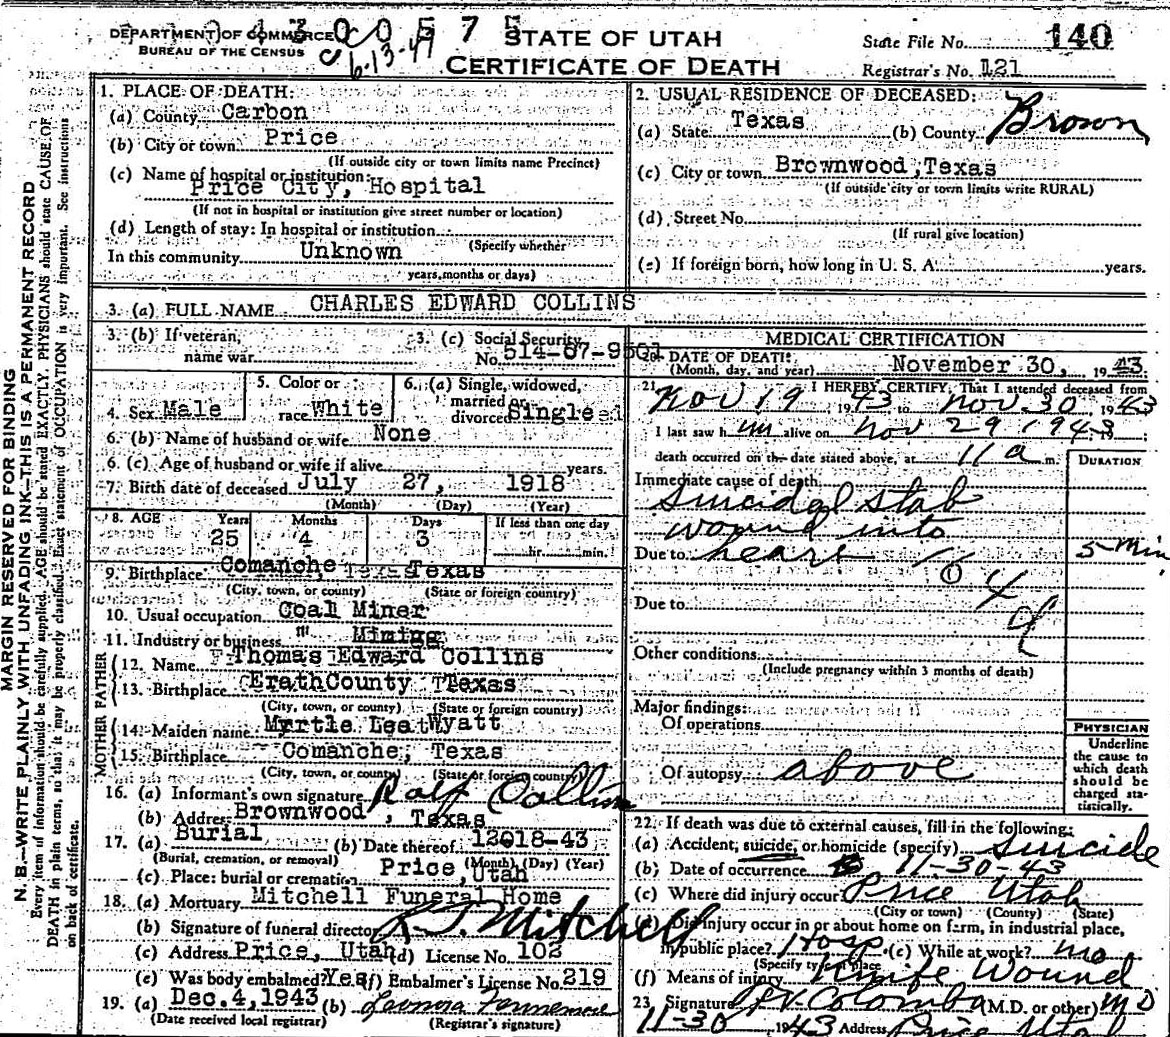 DEPARTMENT OF COMMERCE
BUREAU OF THE CENSUS
6-13-47
STATE OF UTAH
CERTIFICATE OF DEATH
State File No. 140
Registrar's No. 121
MARGIN RESERVED FOR BINDING
N. B.—WRITE PLAINLY, WITH UNFADING INK—THIS IS A PERMANENT RECORD
Every item of information should be carefully supplied. AGE should be stated EXACTLY. PHYSICIANS should state CAUSE OF
DEATH in plain terms, so that it may be properly classified. Exact statement of OCCUPATION is very important. See instructions
on back of certificate.
1. PLACE OF DEATH:
(a) County Carbon
(b) City or town Price
(If outside city or town limits name Precinct)
(c) Name of hospital or institution:
Price City, Hospital
(If not in hospital or institution give street number or location)
(d) Length of stay: In hospital or institution
(Specify whether
In this community Unknown
years, months or days)
2. USUAL RESIDENCE OF DECEASED:
(a) State Texas (b) County Brown
(c) City or town Brownwood, Texas
(If outside city or town limits write RURAL)
(d) Street No.
(If rural give location)
(e) If foreign born, how long in U. S. A. years.
3. (a) FULL NAME CHARLES EDWARD COLLINS
3. (b) If veteran,
name war
3. (c) Social Security
No. 514-07-9501
4. Sex Male
5. Color or
race White
6. (a) Single, widowed,
married or
divorced Single
6. (b) Name of husband or wife None
6. (c) Age of husband or wife if alive years.
7. Birth date of deceased July 27, 1918
(Month) (Day) (Year)
8. AGE Years Months Days If less than one day
25 4 3 hr. min.
9. Birthplace Comanche, Texas Texas
(City, town, or county) (State or foreign country)
10. Usual occupation Coal Miner
11. Industry or business " Mining
FATHER
12. Name Thomas Edward Collins
13. Birthplace Erath County Texas
(City, town, or county) (State or foreign country)
MOTHER
14. Maiden name Myrtle Lea Wyatt
15. Birthplace Comanche, Texas
(City, town, or county) (State or foreign country)
16. (a) Informant's own signature Ralf Collins
(b) Address Brownwood, Texas
17. (a) Burial (b) Date thereof 12-18-43
(Burial, cremation, or removal) (Month) (Day) (Year)
(c) Place: burial or cremation Price, Utah
18. (a) Mortuary Mitchell Funeral Home
(b) Signature of funeral director Mitchell
(c) Address Price, Utah (d) License No. 102
(e) Was body embalmed? Yes (f) Embalmer's License No. 219
19. (a) Dec. 4, 1943 (b)
(Date received local registrar) (Registrar's signature)
MEDICAL CERTIFICATION
20. DATE OF DEATH: November 30, 1943.
(Month, day, and year)
21. I HEREBY CERTIFY, That I attended deceased from
Nov 19, 1943 to Nov 30 1943
I last saw him alive on Nov 29 1943
death occurred on the date stated above, at 11 a m.
Immediate cause of death
DURATION
suicidal stab
wound into
Due to heart
5 min.
Due to
Other conditions
(Include pregnancy within 3 months of death)
Major findings:
Of operations
Of autopsy above
PHYSICIAN
Underline
the cause to
which death
should be
charged sta-
tistically.
22. If death was due to external causes, fill in the following:
(a) Accident, suicide, or homicide (specify) suicide
(b) Date of occurrence 11-30-43
(c) Where did injury occur Price Utah
(City or town) (County) (State)
(d) Did injury occur in or about home on farm, in industrial place,
in public place? Hosp. (e) While at work? no
(Specify type of place)
(f) Means of injury Knife Wound
23. Signature Colombo (M.D. or other) M D
11-30, 1943 Address Price Utah